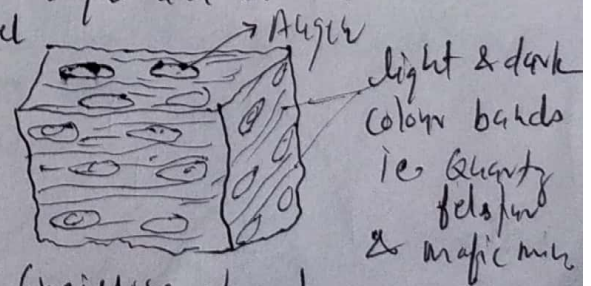 Augen
light & dark
colour bands
ie Quartz
felspar
& mafic min